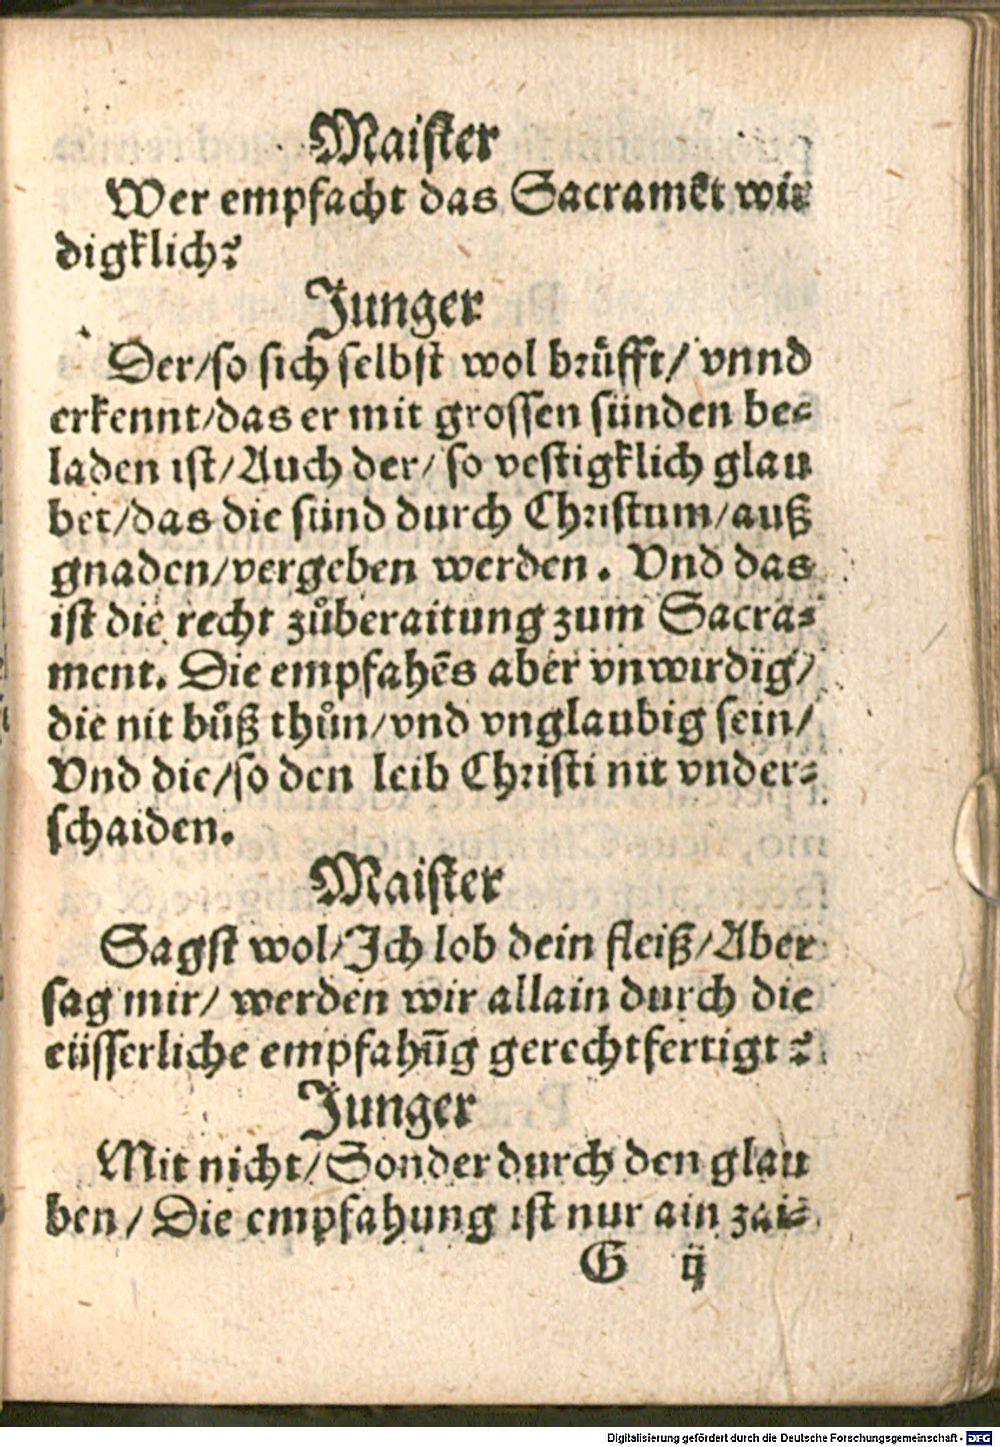 Maister
Wer empfacht das Sacramēt wir
digklich?
Junger
Der/so sich selbst wol brüfft/ vnnd
erkennt/das er mit grossen sünden be⸗
laden ist/Auch der/ so vestigklich glau
bet/das die sünd durch Christum/auß
gnaden/vergeben werden. Vnd das
ist die recht zůberaitung zum Sacra⸗
ment. Die empfahēs aber vnwirdig/
die nit bůß thůn/vnd vnglaubig sein/
Vnd die/so den leib Christi nit vnder⸗
schaiden.
Maister
Sagst wol/Ich lob dein fleiß/Aber
sag mir/ werden wir allain durch die
eüsserliche empfahūg gerechtfertigt?
Junger
Mit nicht/Sonder durch den glau
ben/ Die empfahung ist nur ain zai⸗
G ij
Digitalisierung gefördert durch die Deutsche Forschungsgemeinschaft - DFG